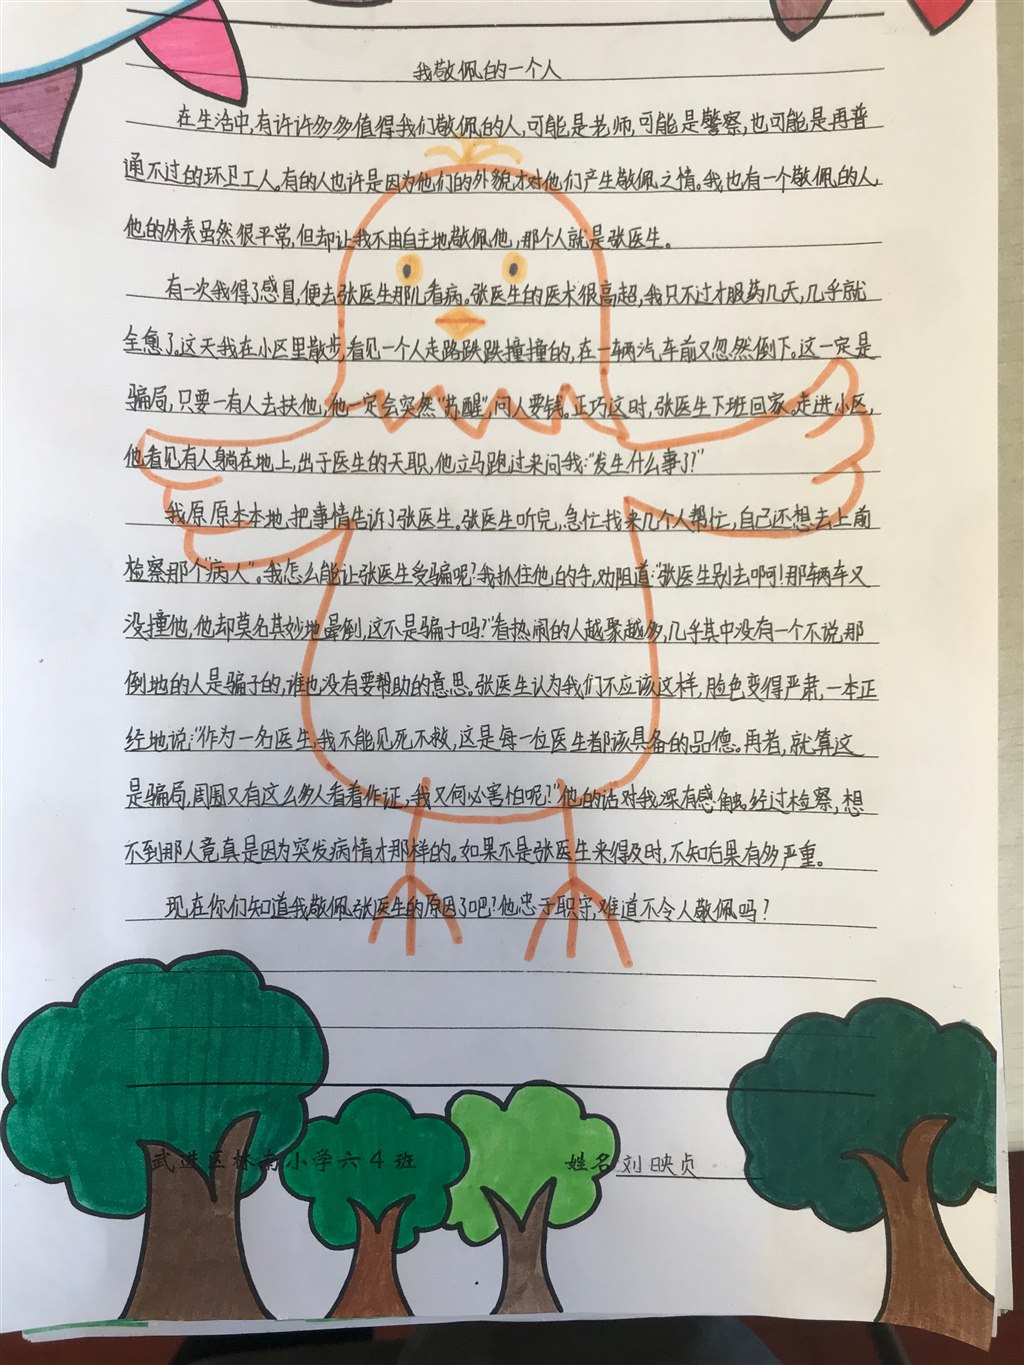 我敬佩的一个人
在生活中,有许许多多值得我们敬佩的人,可能是老师,可能是警察,也可能是再普
通不过的环卫工人。有的人也许是因为他们的外貌才对他们产生敬佩之情。我也有一个敬佩的人,
他的外表虽然很平常,但却让我不由自主地敬佩他,那个人就是张医生。
有一次我得了感冒,便去张医生那儿看病。张医生的医术很高超,我只不过才服药几天,几乎就
全愈了。这天我在小区里散步,看见一个人走路跌跌撞撞的,在一辆汽车前又忽然倒下。这一定是
骗局,只要一有人去扶他,他一定会突然“苏醒”,问人要钱。正巧这时,张医生下班回家。走进小区,
他看见有人躺在地上,出于医生的天职,他立马跑过来问我:“发生什么事了?”
我原原本本地,把事情告诉了张医生。张医生听完,急忙找来几个人帮忙,自己还想去上前
检察那个“病人”。我怎么能让张医生受骗呢?我抓住他的手,劝阻道:“张医生别去啊!那辆车又
没撞他,他却莫名其妙地晕倒,这不是骗子吗?”看热闹的人越聚越多,几乎其中没有一个不说那
倒地的人是骗子的,谁也没有要帮助的意思。张医生认为我们不应该这样,脸色变得严肃,一本正
经地说:“作为一名医生,我不能见死不救,这是每一位医生都该具备的品德。再者,就算这
是骗局,周围又有这么多人看着作证,我又何必害怕呢?”他的话对我深有感触。经过检察,想
不到那人竟真是因为突发病情才那样的。如果不是张医生来得及时,不知后果有多严重。
现在你们知道我敬佩张医生的原因了吧?他忠于职守,难道不令人敬佩吗?
武进区桥南小学六4班
姓名刘映贞